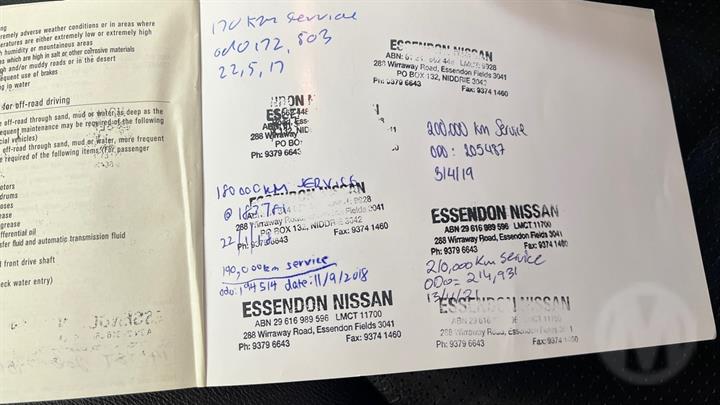 extremely adverse weather conditions or in areas where
temperatures are either extremely low or extremely high
high humidity or mountainous areas
which are high in salt or other corrosive materials
and/or muddy roads or in the desert
frequent use of brakes
in water
or off-road driving
off-road through sand, mud or water as deep as the
frequent maintenance may be required of the following
vehicles)
off-road through sand, mud or water, more frequent
required of the following items (For passenger
differential oil
transfer fluid and automatic transmission fluid
front drive shaft
water entry)
170 km service
odo 172,803
22,5,17
ESSENDON NISSAN
288 Wirraway Road, Essendon Fields 3041
PO BOX 132, NIDDRIE 3042
Ph: 9379 6643 Fax: 9374 1460
288 Wirraway
Ph: 9379 6643
180 000KM SERVICE
ESSENDON NISSAN
288 Wirraway Road, Essendon Fields 3041
PO BOX 132, NIDDRIE 3042
Ph: 9379 6643 Fax: 9374 1460
190,000km service
odo: 194514 date: 11/9/2018
ESSENDON NISSAN
ABN 29 616 989 596 LMCT 11700
288 Wirraway Road, Essendon Fields 3041
Ph: 9379 6643 Fax: 9374 1460
200,000 Km Service
ODO: 205487
3/4/19
ESSENDON NISSAN
ABN 29 616 989 596 LMCT 11700
288 Wirraway Road, Essendon Fields 3041
Ph: 9379 6643 Fax: 9374 1460
210,000 Km Service
ODO= 214,931
ESSENDON NISSAN
ABN 29 616 989
288 Wirraway Road, Essendon Fields 3041
Ph: 9379 6643 Fax: 9374 1460